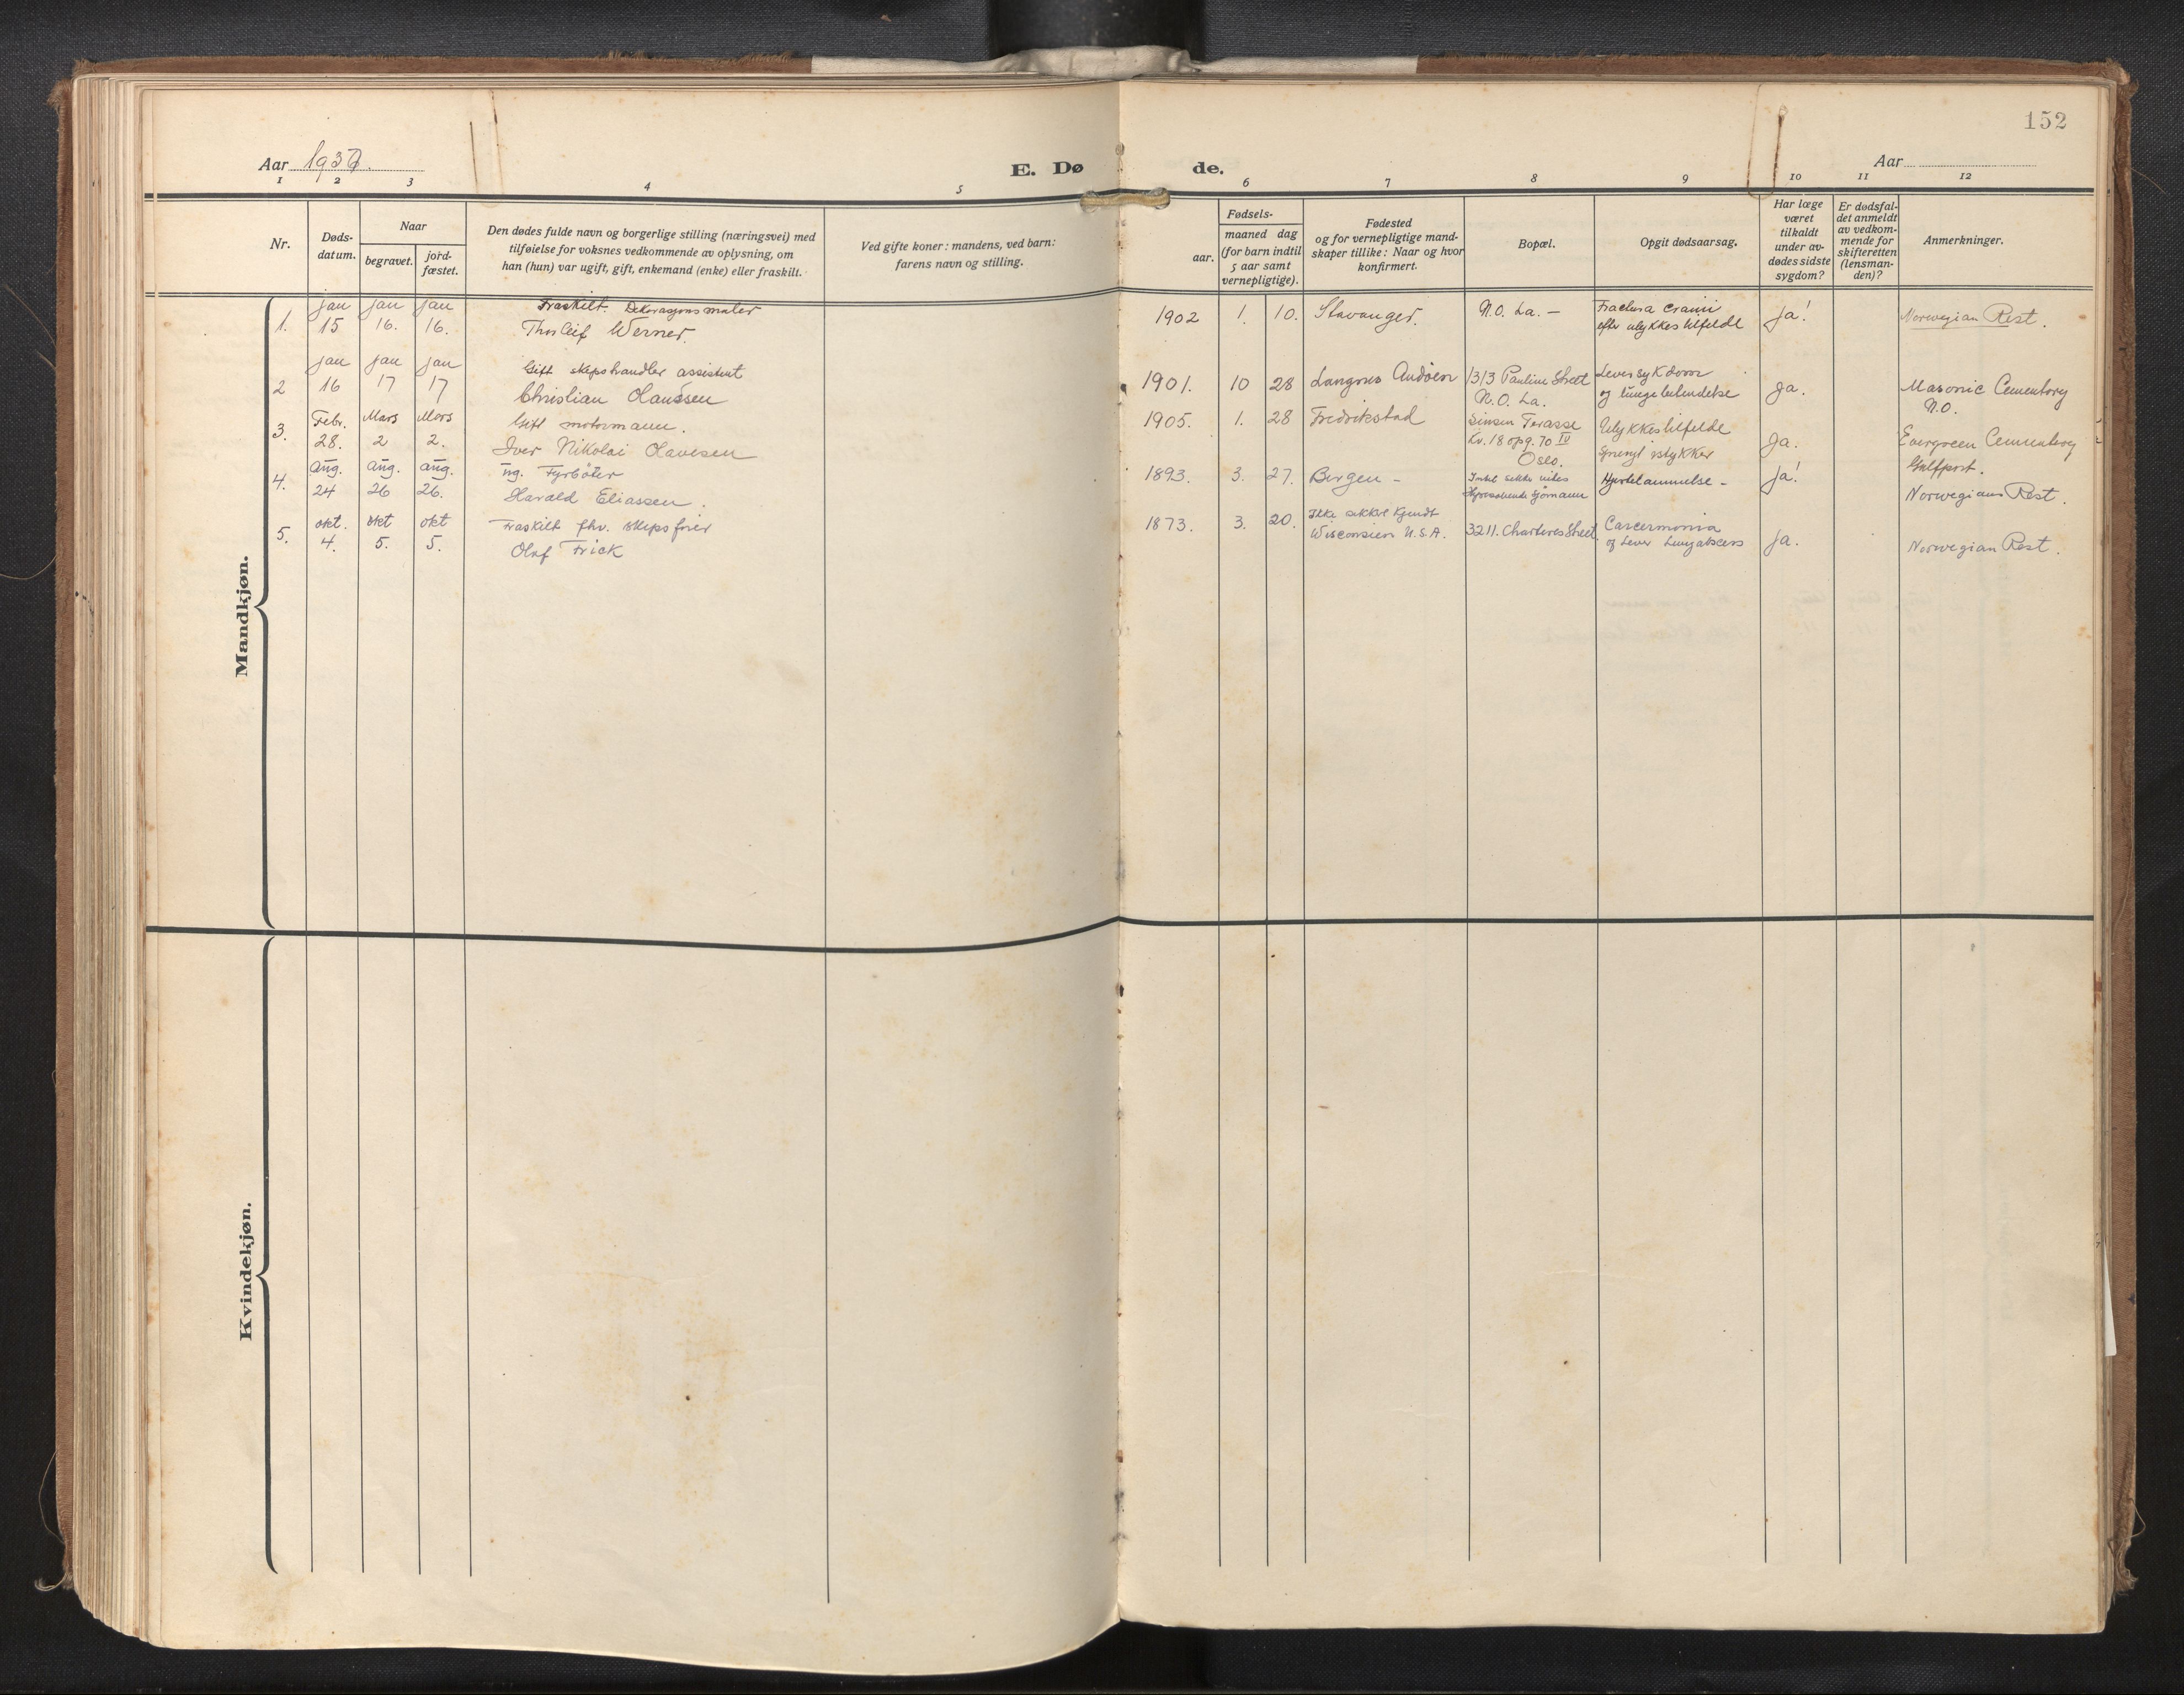 152
Aar 1937.
E. Dø de.
Aar
1 2 3 4 5 6 7 8 9 10 11 12
Nr.
Døds-
datum.
Naar
begravet.
jord-
fæstet.
Den dødes fulde navn og borgerlige stilling (næringsvei) med
tilføielse for voksnes vedkommende av oplysning, om
han (hun) var ugift, gift, enkemand (enke) eller fraskilt.
Ved gifte koner: mandens, ved barn:
farens navn og stilling.
Fødsels-
aar.
maaned dag
(for barn indtil
5 aar samt
vernepligtige).
Fødested
og for vernepligtige mand-
skaper tillike: Naar og hvor
konfirmert.
Bopæl.
Opgit dødsaarsag.
Har læge
været
tilkaldt
under av-
dødes sidste
sygdom?
Er dødsfal-
det anmeldt
av vedkom-
mende for
skifteretten
(lensman-
den)?
Anmerkninger.
Mandkjøn.
jan jan jan Fraskilt. Dekorasjonsmaler N.O. La. — Fractura Cranii
1. 15 16. 16. Thorleif Werner. 1902 1. 10. Stavanger. efter ulykkestilfelde Ja! Norwegian Rest.
jan jan jan Gift skipshandler assistent 1313 Pauline Street Leversykdom
2 16 17 17 Christian Claussen 1901. 10 28 Langnes Andøen N.O. La. og lungebetendelse Ja. Masonic Cementery
N.O.
Febr. Mars Mars Gift motormann. 1905. 1. 28 Fredrikstad Sinsen Terasse Ulykkestilfelde
3. 28. 2 2. Iver Nikolai Olavesen Kv. 18 opg. 70 IV Oslo. Ja. Evergreen Cementery
Gulfport.
Aug. Aug. Aug. ug. Fyrbøter
4. 24 26 26. Harald Eliassen. 1893. 3. 27. Bergen - sjømann Hjertelammelse - Ja! Norwegians Rest.
okt. okt okt Fraskilt fhv. skipsfører Ikke sikkert kjendt
5. 4. 5. 5. Olaf Frick 1873. 3. 20. Wisconsien U.S.A. 3211. Chartres Street og Lever Lungabscess Ja. Norwegian Rest.
Kvindekjøn.